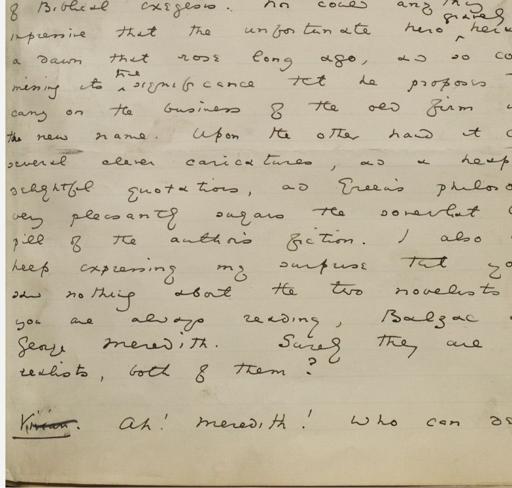 of Biblical exegesis. Nor could anything
gravely
impressive that the unfortunate hero,
a dawn that rose long ago, and so
missing its true significance that he proposes
carry on the business of the old firm
the new name. Upon the other hand it
several clever caricatures, and a heap
delightful quotations, and Green's
very pleasantly sugars the somewhat
pill of the author's fiction. I also
keep expressing my surprise that
said nothing about the two novelists
you are always reading, Balzac
George Meredith. Surely they are
realists, both of them?
Vivian. Ah! Meredith! Who can